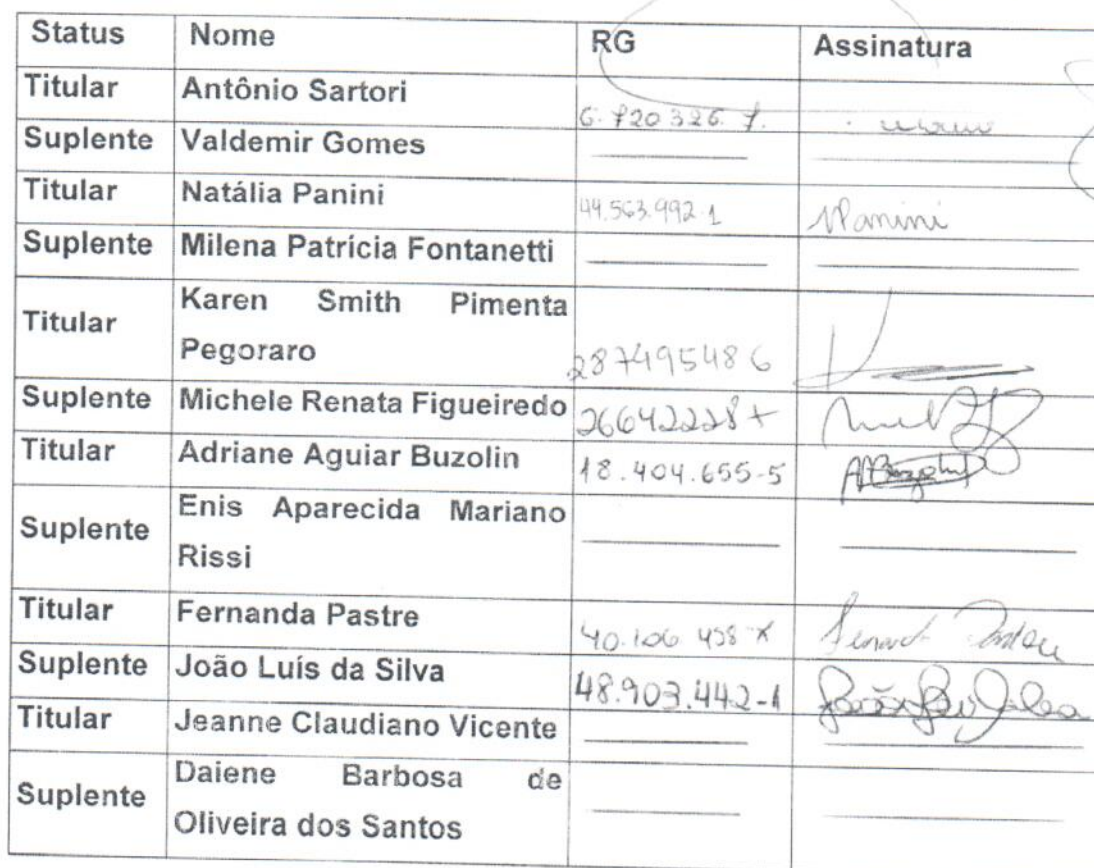 Status Nome RG Assinatura
Titular Antônio Sartori
Suplente Valdemir Gomes
Titular Natália Panini 44.563.992-1 NPanini
Suplente Milena Patrícia Fontanetti
Titular Karen Smith Pimenta
Pegoraro 287495486
Suplente Michele Renata Figueiredo
Titular Adriane Aguiar Buzolin 18.404.655-5
Suplente Enis Aparecida Mariano
Rissi
Titular Fernanda Pastre 40.106.458-X
Suplente João Luís da Silva 48.903.442-1
Titular Jeanne Claudiano Vicente
Suplente Daiene Barbosa de
Oliveira dos Santos